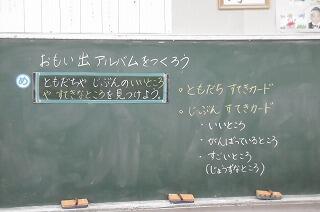 おもい出アルバムをつくろう
め
ともだちや じぶんのいいところ
や すてきなところを見つけよう
。ともだち すてきカード
。じぶん すてきカード
・いいところ
・がんばっているところ
・すごいところ
(じょうずなところ)